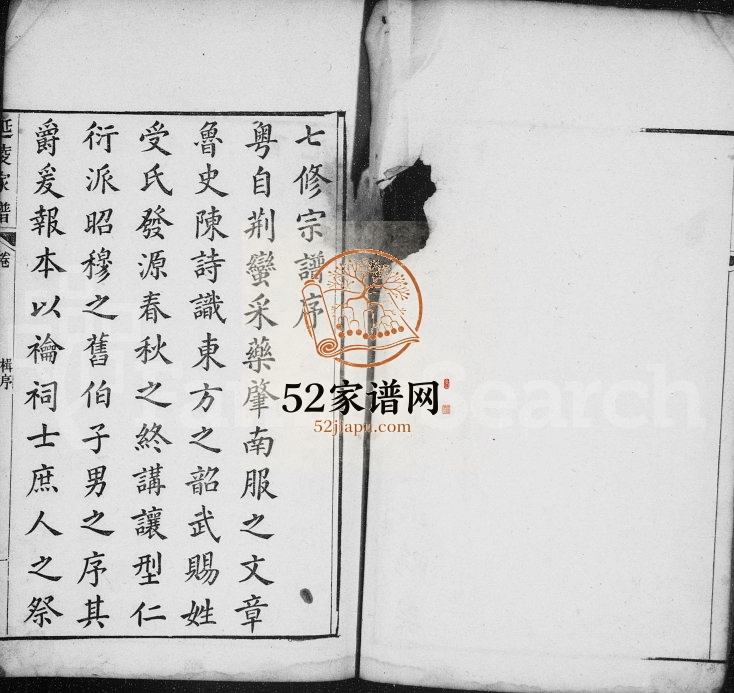 七修宗譜序
粵自荆蠻采藥肇南服之文章
魯史陳詩識東方之韶武賜姓
受氏發源春秋之終講讓型仁
衍派昭穆之舊伯子男之序其
爵爰報本以禴祠士庶人之祭
延陵家譜
卷
楫序
52家谱网
52jiapu.com
Search